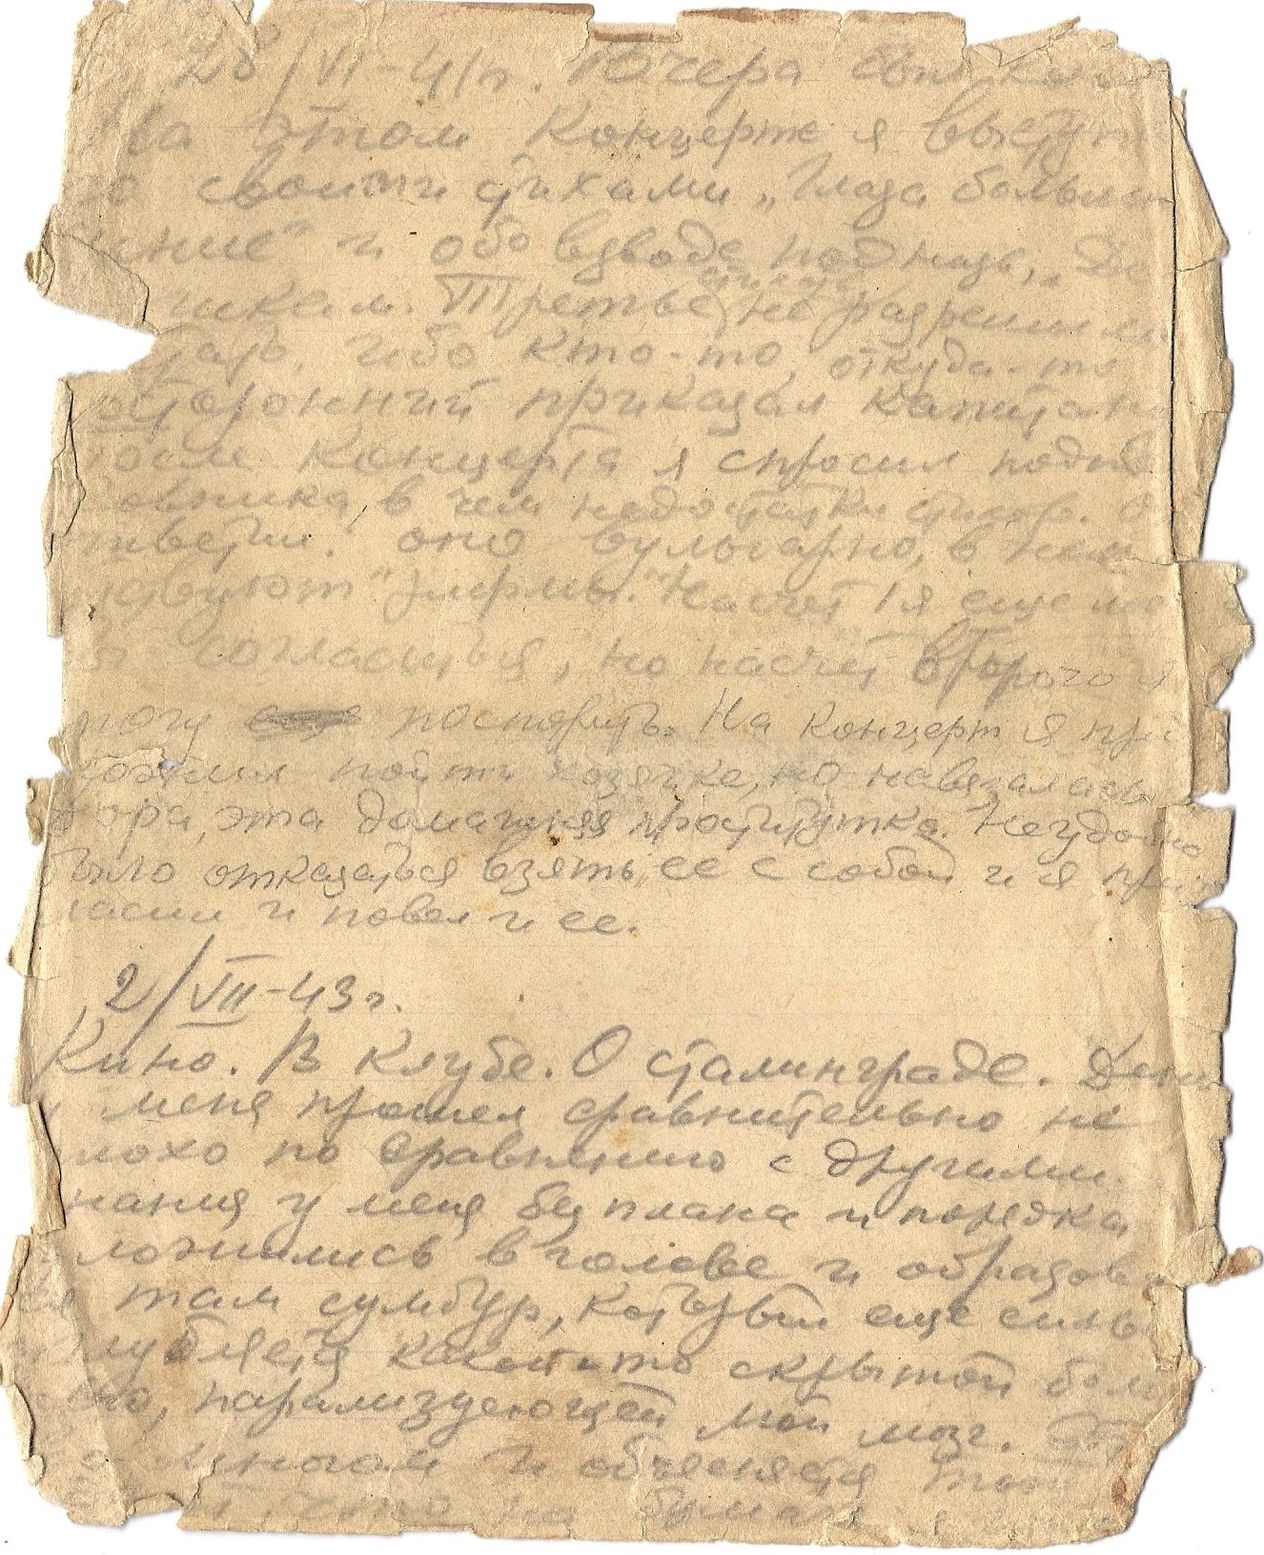 28/VI-41г. Вчера был ко
На этом концерте я выступ
со своими стихами „Глаза больш
ение" и обо взводе под назв. „
никам. Третье стих не разрешили
дать, ибо кто-то, откуда-то
осторожний приказал капитан
После концерта я спросил подпо
овника, в чем недостатки стихов. О
тветил: оно вульгарно, в нем
ствуют "
согласиться, но насчет второго я
могу поспорить. На концерт я при
пойти хозяйке, но навязалась
ора, эта домашняя проститутка. Неудобно
было отказаться взять ее с собой и я приг
ласил и повел и ее.
2/VII-43г.
Кино. В клубе. О сталинграде. День
у меня прошел сравнительно не
плохо по сравнению с другими.
нания у меня без плана и порядка
ложились в голове и образова
там сумбур, который еще силь
убляется какой-то скрытой боле
ью, парализующей мой мозг.
многом и объясняется
что на бума